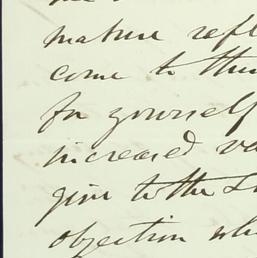 mature refl
come to this
for yourself
increased va
give to the Li
objection whi